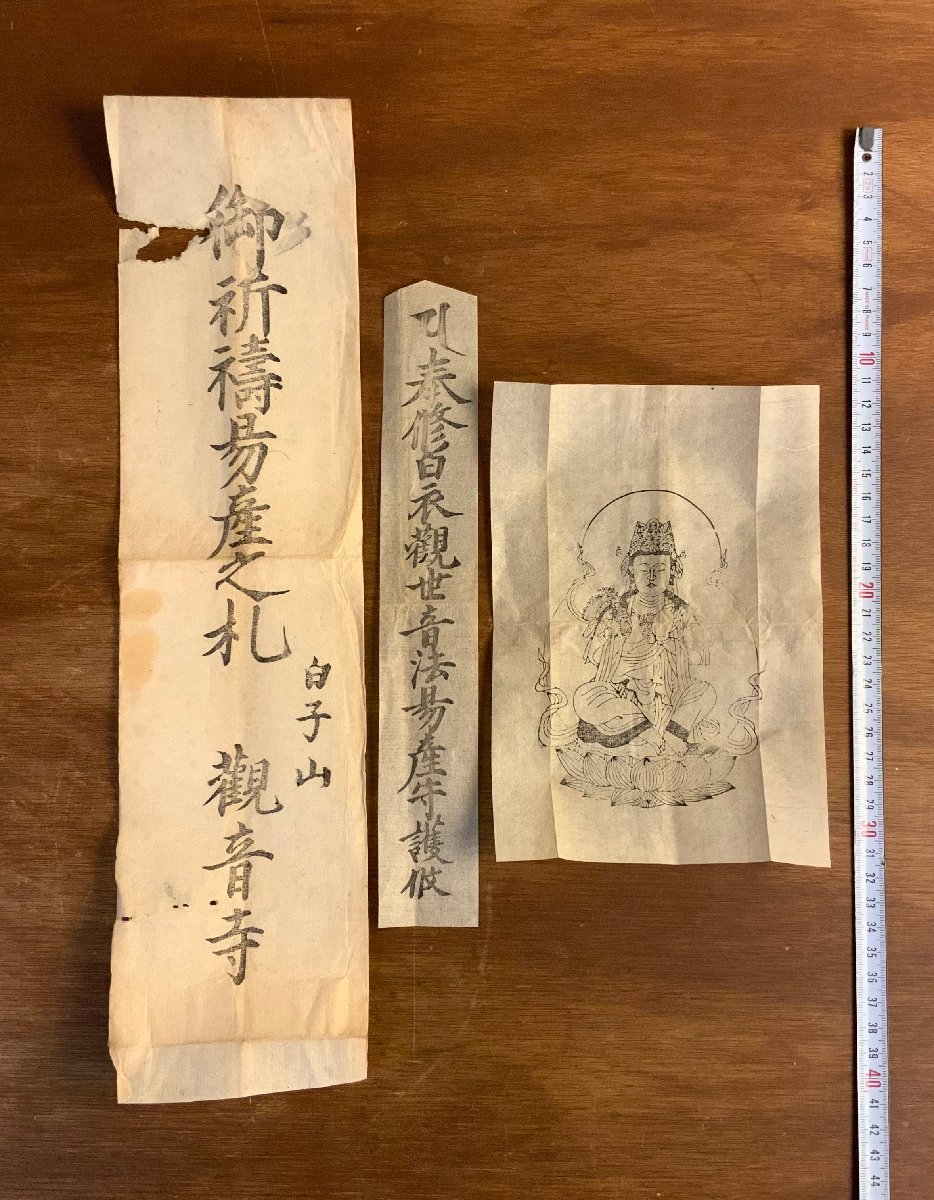 御祈禱易産之札
白子山
觀音寺
奉修白衣觀世音法易産守護攸
2 3 4 5 6 7 8 9 10 11 12 13 14 15 16 17 18 19 20 21 22 23 24 25 26 27 28 29 30 31 32 33 34 35 36 37 38 39 40 41 42 43 44